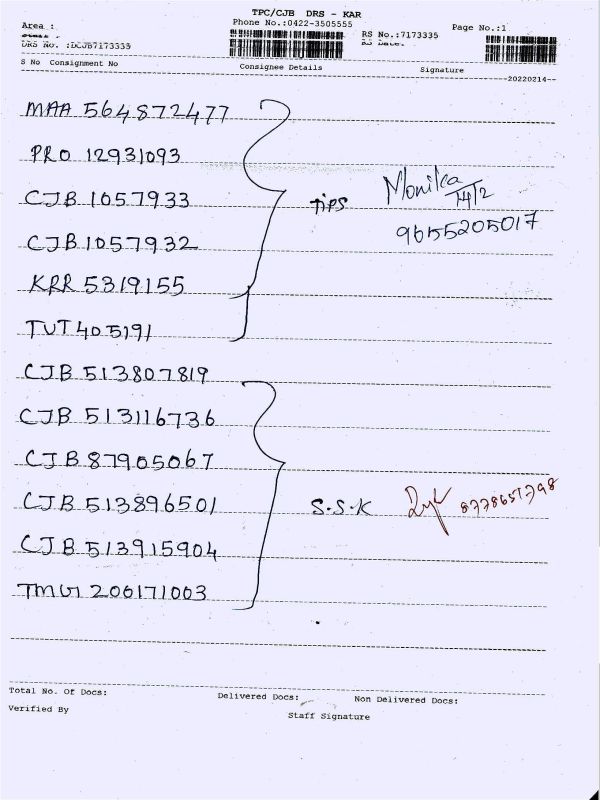 TPC/CJB DRS - KAR
Area :
Phone No.:0422-3505555
Page No.:1
RS No.:7173335
DRS No. :DCJB7173335
RS Date:
S No Consignment No Consignee Details Signature
20220214
MAA 564872477
PRO 12931093
CJB 1057933
TIPS Monika 14/2
CJB 1057932
9655205017
KRR 5319155
TUT 405191
CJB 513807819
CJB 513116736
CJB 87905067
CJB 513896501 S.S.K 8778657798
CJB 513915904
200171003
Total No. Of Docs: Delivered Docs: Non Delivered Docs:
Verified By
Staff Signature